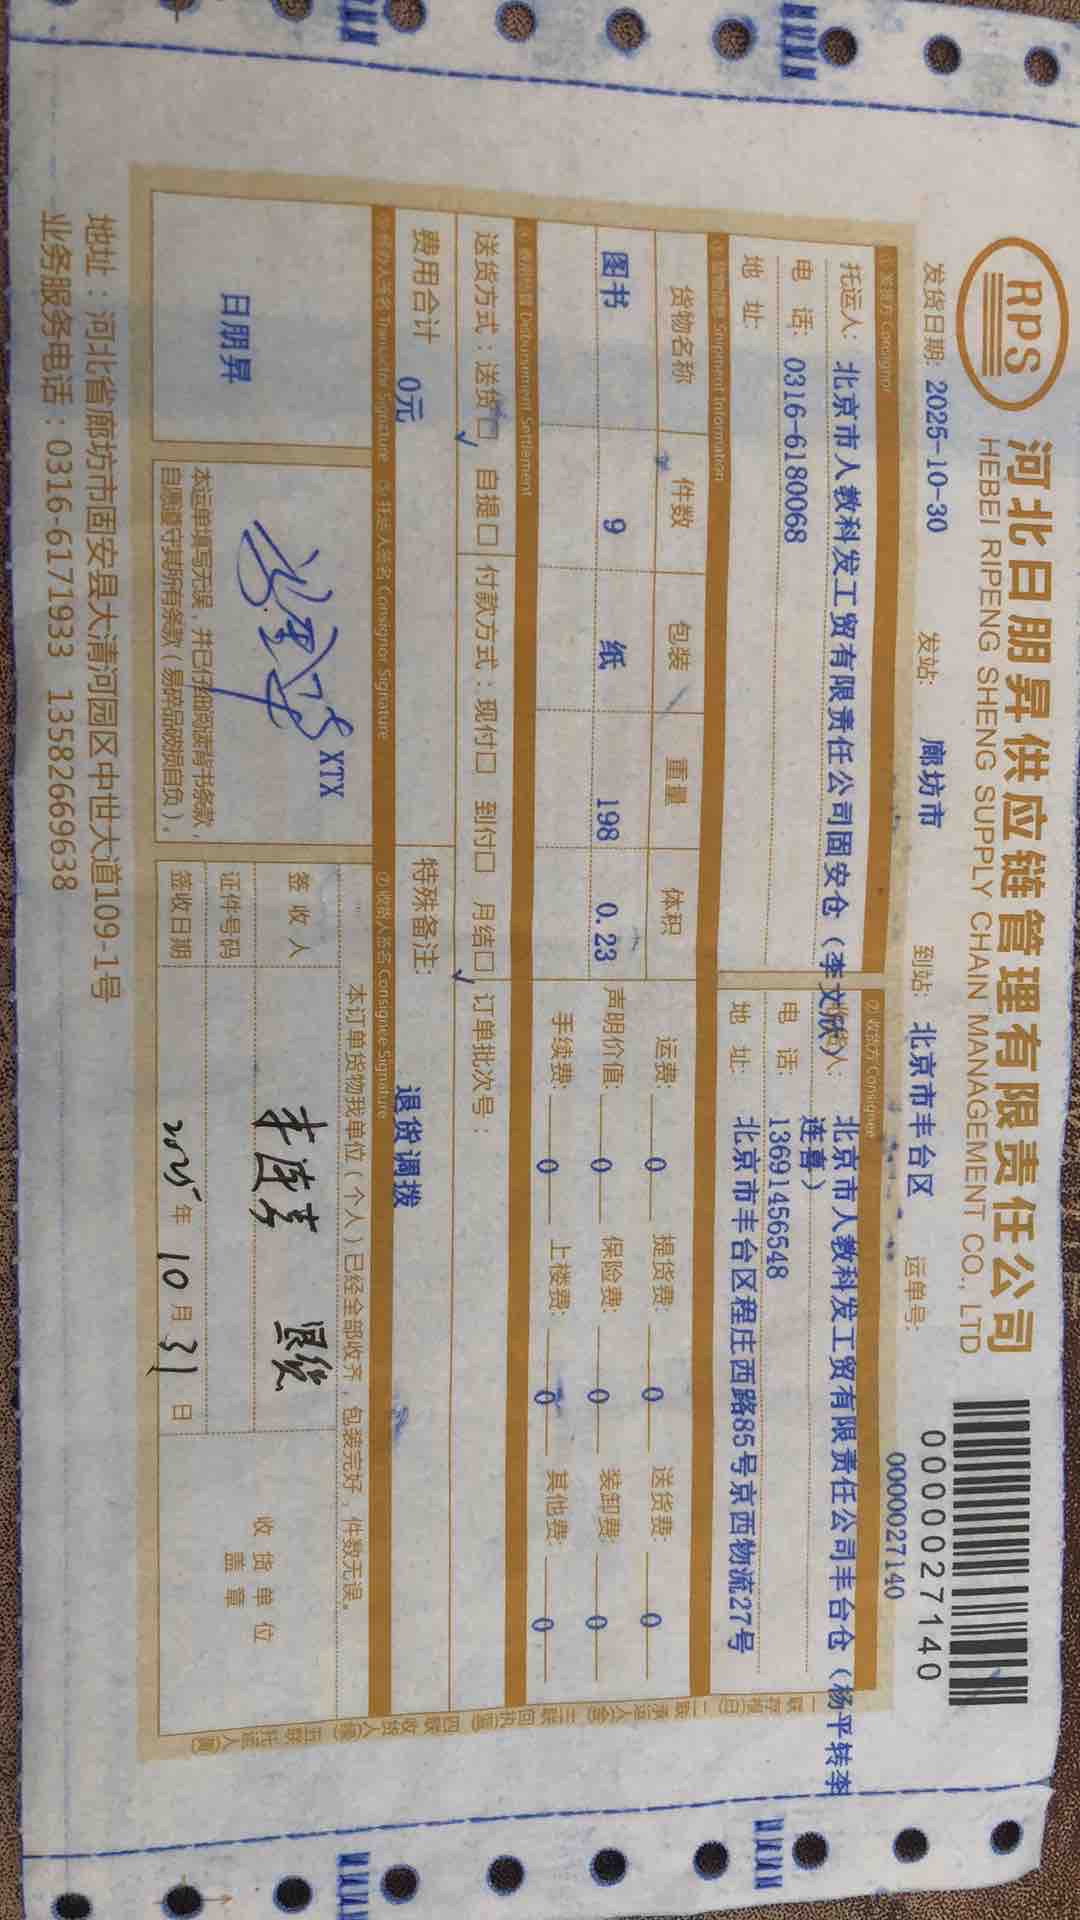 RPS
河北日朋昇供应链管理有限责任公司
HEBEI RIPENG SHENG SUPPLY CHAIN MANAGEMENT CO., LTD
0000027140
发货日期: 2025-10-30 发站: 廊坊市 到站: 北京市丰台区 运单号: 0000027140
① 发货方 Consignor ② 收货方 Consignee
托运人: 北京市人教科发工贸有限责任公司固安仓（李文欣）
电 话: 0316-6180068
地 址:
北京市人教科发工贸有限责任公司丰台仓（杨平转李
连喜）
电 话: 13691456548
地 址: 北京市丰台区程庄西路85号京西物流27号
③ 货物信息 Shipment Information
货物名称 件数 包装 重量 体积
图书 9 纸 198 0.23
运费: 0 提货费: 0 送货费: 0
声明价值: 0 保险费: 0 装卸费: 0
手续费: 0 上楼费: 0 其他费: 0
Disbursement Settlement
送货方式：送货□✓ 自提□ 付款方式：现付□ 到付□ 月结□✓ 订单批次号：
费用合计 0元 特殊备注: 退货调拨
⑤ 托运人签名 Consignor Signature ⑦ 收货人签名 Consignee Signature
日朋昇
XTX
本运单填写无误，并已仔细阅读背书条款，
自愿遵守其所有条款（易碎品破损自负）。
本订单货物我单位（个人）已经全部收齐，包装完好，件数无误。
签 收 人
证件号码
签收日期 2025年10月31日
收货单位
盖章
一联存根(白) 二联承运人(金) 三联回执(蓝) 四联收货人(绿) 五联托运人(黄)
地址：河北省廊坊市固安县大清河园区中世大道109-1号
业务服务电话：0316-6171933 13582669638